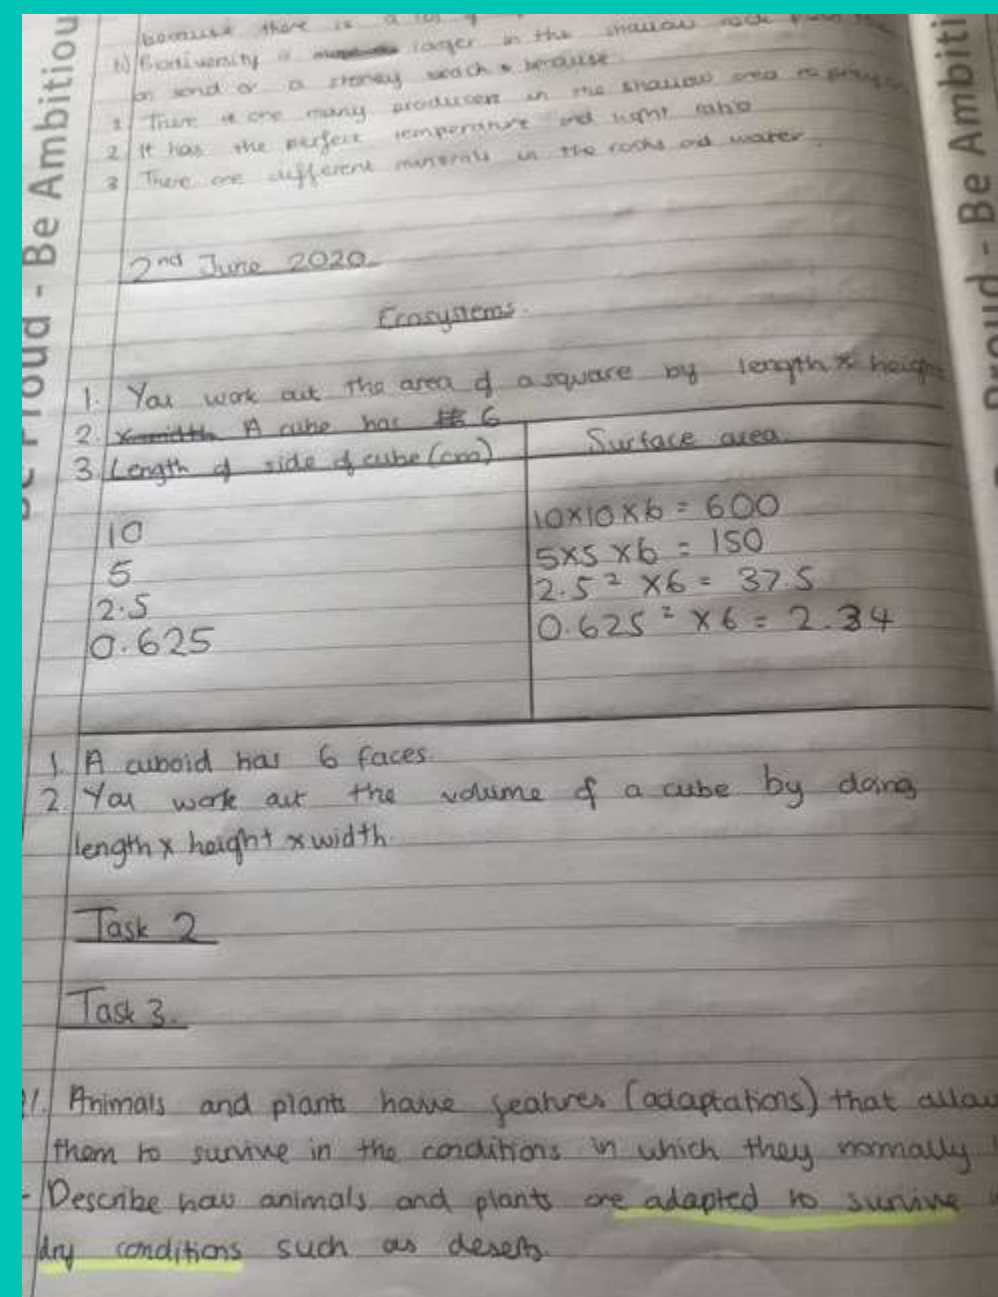 because there is a lot of
b) Biodiversity is larger in the shallow rock
on sand or a stoney beach because
1 There is are many producers in the shallow area
2 It has the perfect temperature and light ratio
3 There are different minerals in the rocks and water.
2nd June 2020
Ecosystems.
1. You work out the area of a square by length x height
2. A cube has 6
3. Length of side of cube (cm) Surface area
10 10x10x6 = 600
5 5x5x6 = 150
2.5 2.5² x6 = 37.5
0.625 0.625² x6 = 2.34
1. A cuboid has 6 faces.
2. You work out the volume of a cube by doing
length x height x width.
Task 2
Task 3.
Animals and plants have features (adaptations) that allow
them to survive in the conditions in which they normally
- Describe how animals and plants are adapted to survive
dry conditions such as deserts.
Proud - Be Ambitiou
Proud - Be Ambiti